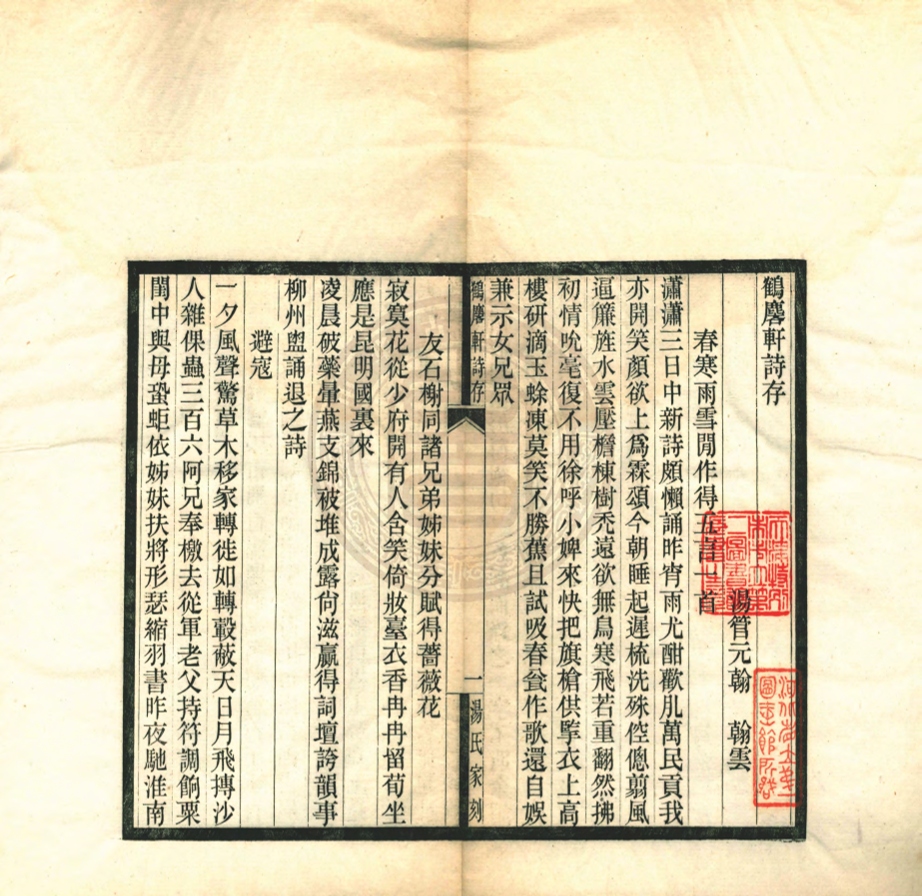 鶴麐軒詩存
湯管元翰　翰雲
春寒雨雪閒作得五言一首
瀟瀟三日中新詩頗懶誦昨宵雨尤酣歡肌萬民貢我
亦開笑顏欲上為霖頌今朝睡起遲梳洗殊倥傯翦風
逼簾旌水雲壓檐棟樹禿遠欲無鳥寒飛若重翻然拂
初情吮毫復不用徐呼小婢來快把旗槍供擎衣上高
樓研滴玉蜍凍莫笑不勝蕉且試吸春瓮作歌還自娛
兼示女兄眾
友石榭同諸兄弟姊妹分賦得薔薇花
寂寞花從少府開有人含笑倚妝臺衣香冉冉留荀坐
應是昆明國裏來
凌晨破藥暈燕支錦被堆成露尙滋贏得詞壇誇韻事
柳州盥誦退之詩
避寇
一夕風聲驚草木移家轉徙如轉轂蔽天日月飛摶沙
人雜倮蟲三百六阿兄奉檄去從軍老父持符調餉粟
閨中與母蛩蚷依姊妹扶將形瑟縮羽書昨夜馳淮南
鶴麐軒詩存
一
湯氏家刻